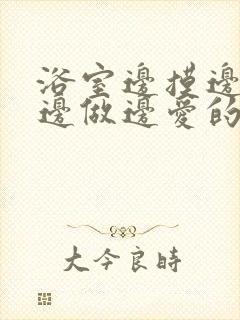 浴室邊摸邊
邊做邊愛的
大今良時